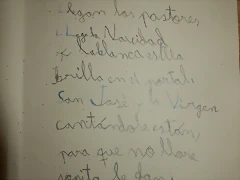 llegan los pastores
la Navidad
blanca estrella
brilla en el portal
San José y la Virgen
cantándole están,
para que no llore